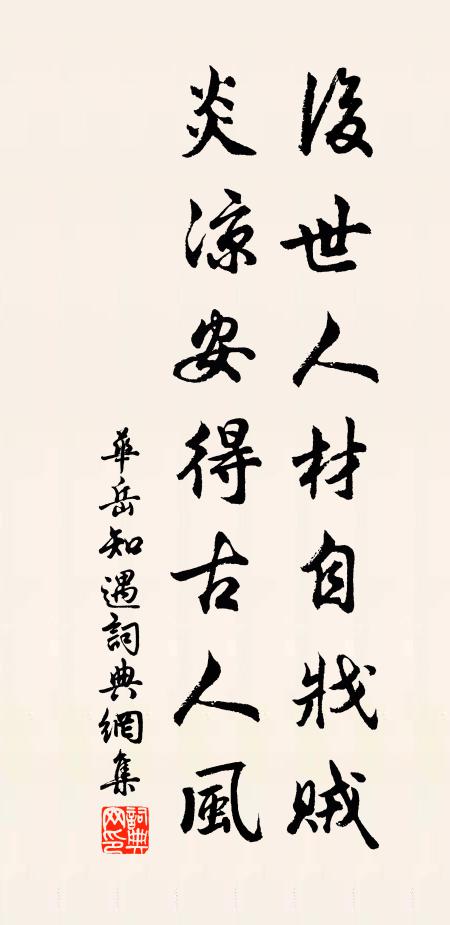 後世人材自戕賊
炎涼安得古人風
華岳知遇詞典網集
詞典網印